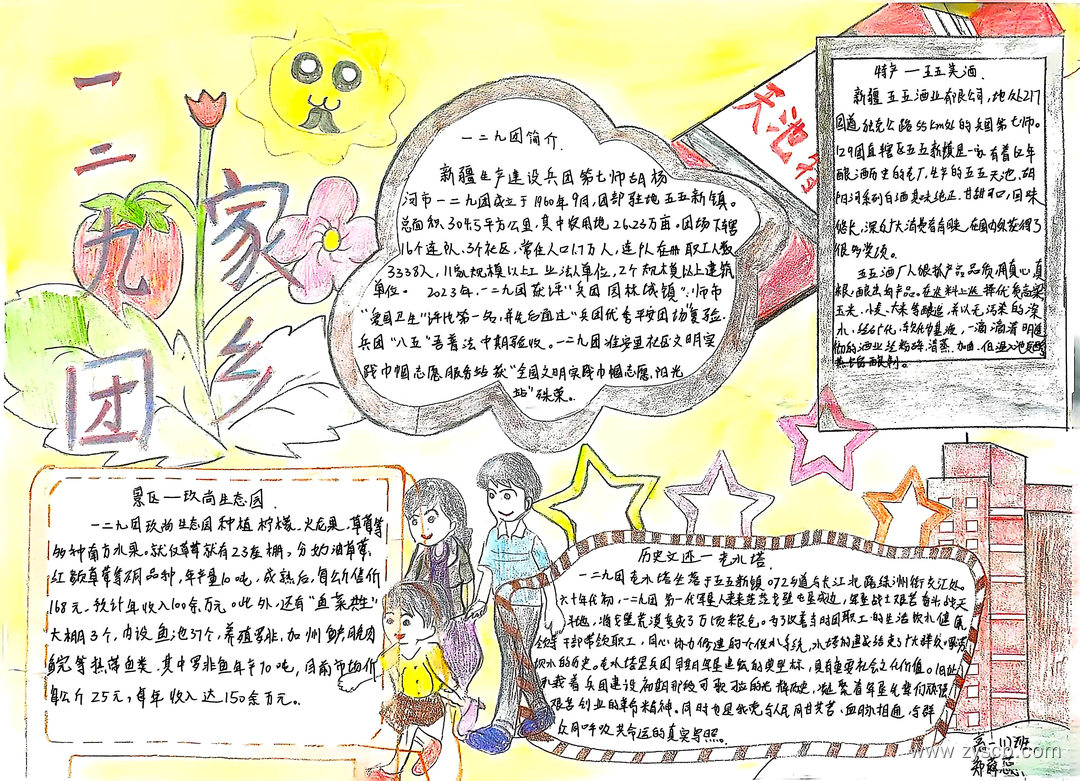 一二九团
家乡
一二九团简介.
新疆生产建设兵团第七师胡杨
河市一二九团成立于1960年9月,团部驻地五五新镇.
总面积304.5平方公里,其中农用地26.23万亩,团场下辖
16个连队、3个社区,常住人口1.7万人,连队在册职工人数
3338人,11家规模以上工业法人单位,2个规模以上建筑
单位。 2023年,一二九团获评"兵团园林城镇".师市
"爱国卫生"评比第一名,并先后通过"兵团优秀平安团场"复验.
兵团"八五"普法中期验收。一二九团淮安里社区文明实
践巾帼志愿服务站获"全国文明实践巾帼志愿阳光
站"殊荣。
天池特
特产一五五美酒.
新疆五五酒业有限公司,地处217
国道,独克公路55km处的兵团第七师。
129团直辖区五五新镇是一家有着
酿酒历史的老厂.生产的五五天池、胡
杨河系列白酒美味纯正、甘甜可口,回味
悠长,深受广大消费者青睐,在国内外获得了
很多奖项。
五五酒厂人狠抓产品品质,用真心,真
粮,酿出好产品。在选料上选择优质高粱
玉米、小麦、大米
景区一玖尚生态园.
一二九团玖尚生态园种植柠檬、火龙果、草莓等
多种南方水果。就仅草莓就有23座棚,分奶油草莓、
红颜草莓等不同品种,年产量10吨,成熟后,每公斤售价
168元.预计年收入100余万元。此外,还有"鱼菜共生"
大棚3个,内设鱼池37个,养殖罗非、加州鲈、脆肉
鲩等热带鱼类.其中罗非鱼年产70吨,目前市场价
每公斤25元,每年收入达150余万元。
历史文迹一老水塔
一二九团老水塔坐落于五五新镇072乡道与长江北路绿洲街交汇处。
六十年代初,一二九团第一代军垦人来来茫茫戈壁屯垦戍边,军垦战士艰苦奋斗战天
斗地,将戈壁荒漠变成了万顷良田。为了改善当时团职工的生活饮水健康,
领导干部带领职工,同心协力修建的
饮水的历史。老水塔是兵团早期军垦建筑的典型,具有重要社会文化价值。
承载着兵团建设初期那段可歌可泣的光辉历史,凝聚着军垦先辈们顽强
艰苦创业的革命精神。同时也是我党与人民同甘共苦、血脉相通、与群
众同呼吸共命运的真实写照。
www.zyscb.com